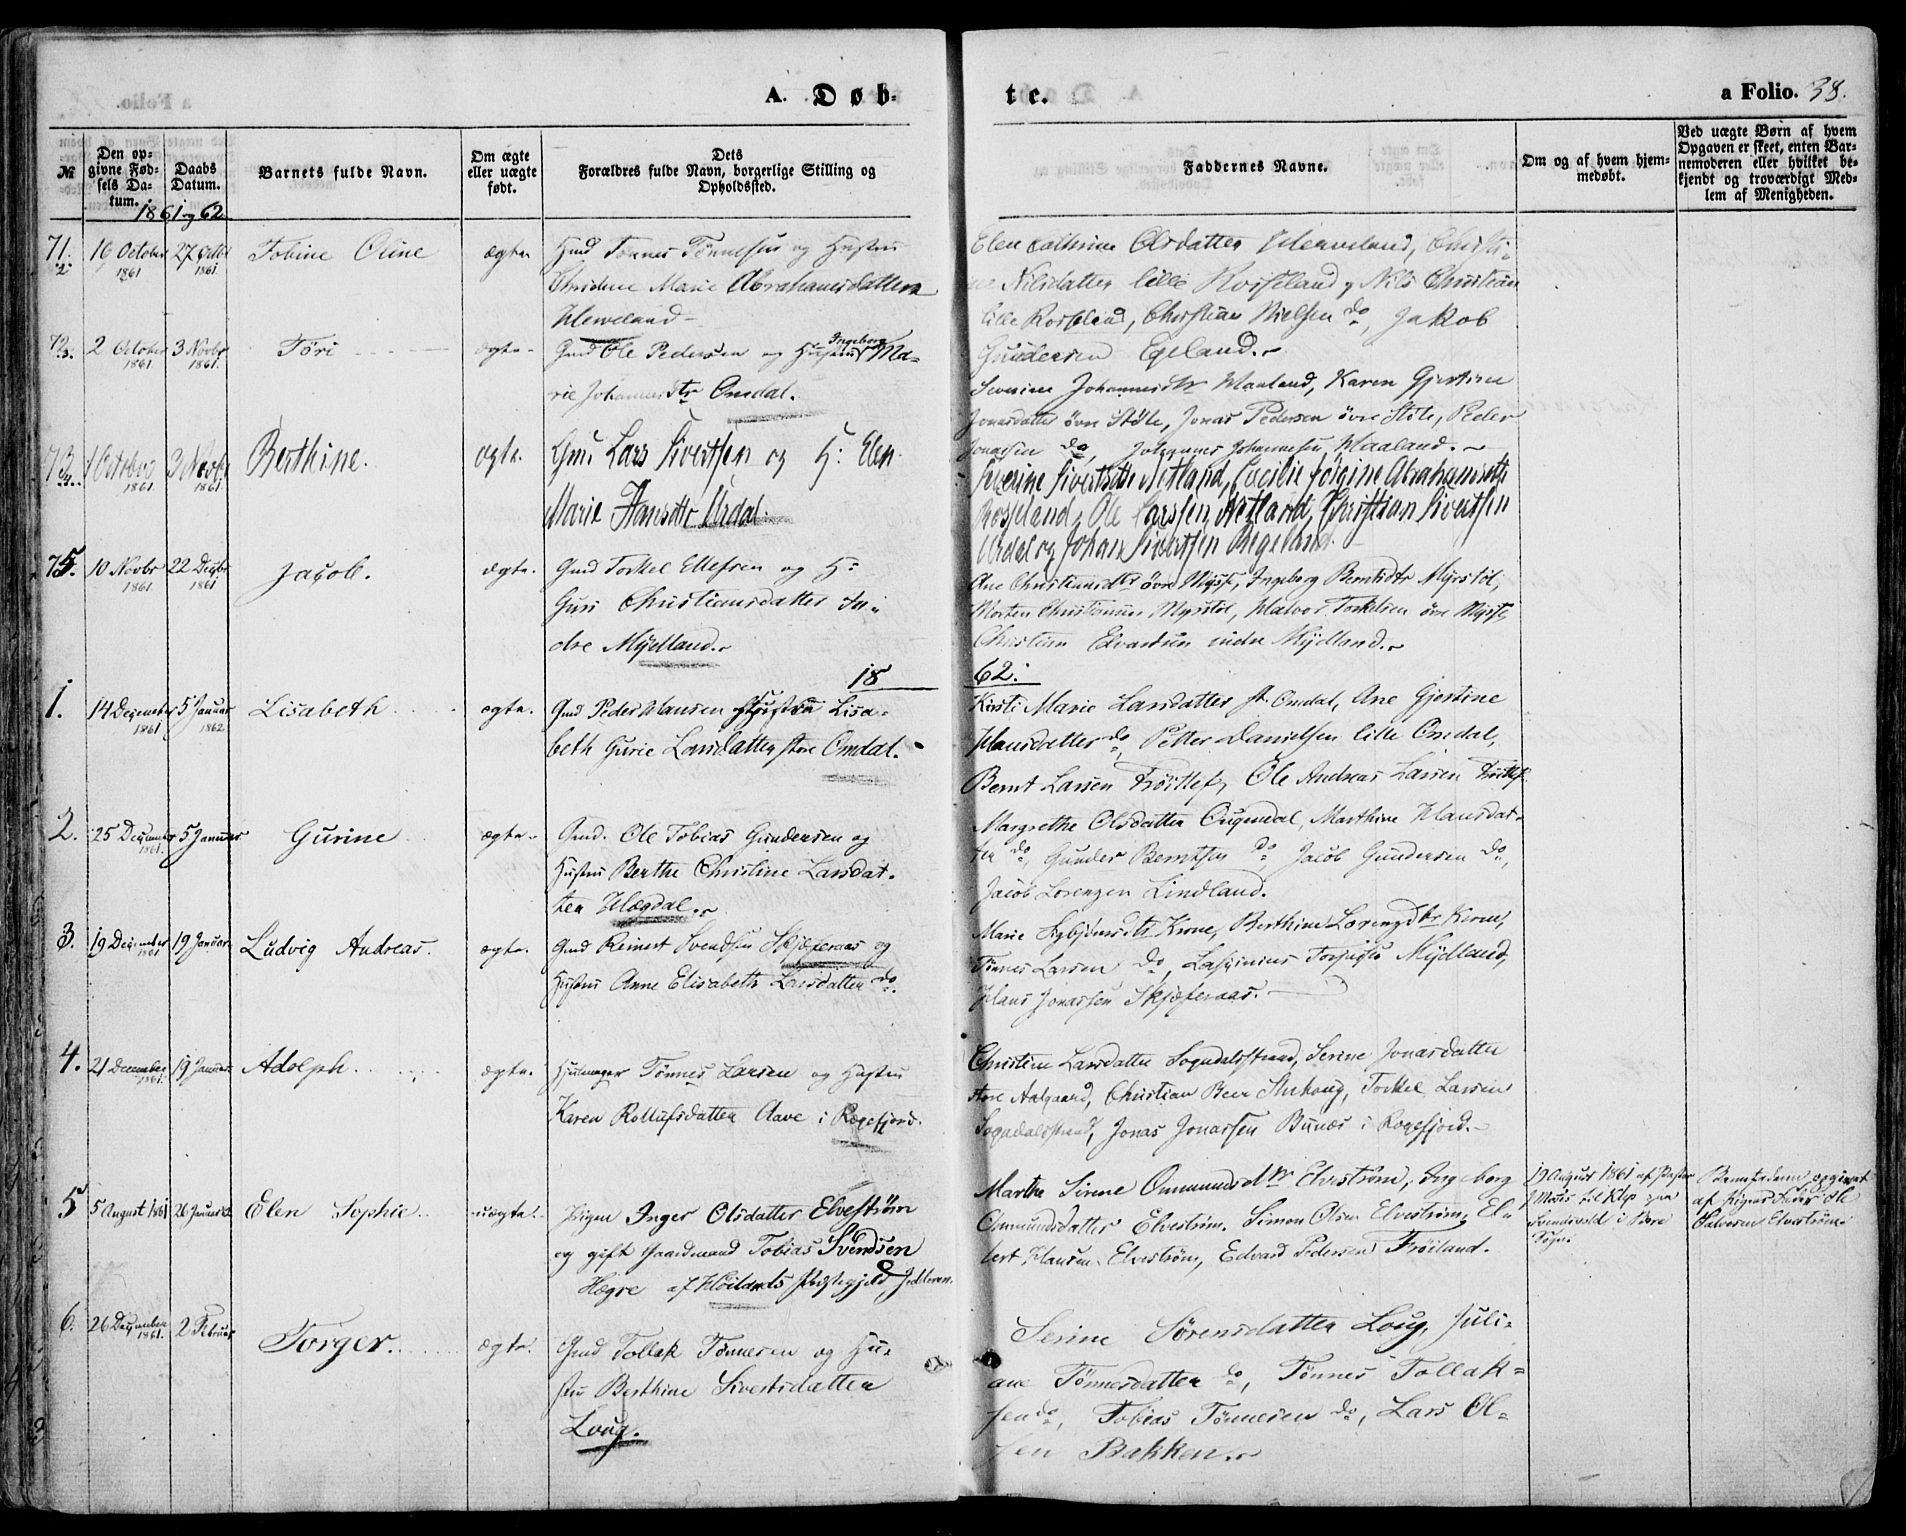 A. Døb-
te.
a Folio. 38.
№
Den op-
givne Fød-
sels Da-
tum.
Daabs
Datum.
Barnets fulde Navn.
Om ægte
eller uægte
født.
Dets
Forældres fulde Navn, borgerlige Stilling og
Opholdssted.
Faddernes Navne.
Om og af hvem hjem-
medøbt.
Ved uægte Børn af hvem
Opgaven er skeet, enten Bar-
nemoderen eller hvilket be-
kjendt og troværdigt Med-
lem af Menigheden.
1861 og 62
71.
2
16 October
1861
27 Octbr
1861.
Tobine Oline
ægte
Gmd Tønnes Tønnesen og Hustru
Christine Marie Abrahamsdatter
Hleweland
Elen Cathrine Olsdatter Hleweland, Christi-
ne Nilsdatter lille Rosseland, Nils Christian
lille Rosseland, Christian Nielsen do, Jakob
Gundersen Egeland.
72.
3.
2 October
1861.
3 Novbr
1861.
Töri
ægte
Gmd Ole Pedersen og Hustru Ingeborg Ma-
rie Johannesdtr Omdal.
Severine Johannesdtr Maaland, Karen Gjertine
Jonasdatter övre Støle, Jonas Pedersen övre Støle, Peder
Jonassen do, Johannes Johannesen Maaland.
73.
4.
1 October
1861.
3 Novbr
1861.
Berthine.
ægte.
Gmd Lars Sivertsen og H: Elen
Marie Hansdtr Urdal.
Severine Sivertsdtr Netland, Cecilie Jörgine Abrahamsdtr
Rosseland, Ole Larssen Netland, Christian Sivertsen
Urdal og Johan Sivertsen Regeland.
75.
10 Novbr
1861.
22 Decbr
1861.
Jacob.
ægte.
Gmd Torkel Ellefsen og H:
Guri Christiansdatter In-
dre Mydland.
Ane Christiansdtr övre Mysse, Ingeborg Berntsdtr Myrstøl,
Morten Christiansen Myrstøl, Halvor Torkelsen övre Mysse,
Christian Edvardsen indre Mydland.
18
62.
1.
14 December
1861
5 Januar
1862
Lisabeth
ægte.
Gmd Peder Hansen og Hustru Lisa-
beth Gurie Larsdatter store Omdal.
Kirsti Marie Larsdatter st. Omdal, Ane Gjertine
Hansdatter do, Petter Danielsen lille Omdal,
Bernt Larsen, Ole Andreas Larsen
2.
25 December
1861.
5 Januar
Gurine
ægte.
Gmd. Ole Tobias Gundersen og
Hustru Berthe Christine Larsdat-
ter Hægdal.
Margrethe Olsdatter Ougendal, Marthine Hansdat-
ter do, Gunder Berntsen do, Jacob Gundersen do,
Jacob Lorenzen Lindland.
3.
19 December
1861
19 Januar
Ludvig Andreas.
ægte.
Gmd Reinert Svendsen Skjæferaas og
Hustru Anne Elisabeth Larsdatter do.
Marie Asbjörnsdtr Kirne, Berthine Lorenzdtr Kirne,
Tönnes Larsen do, Mydland,
Hans Jonassen Skjæferaas.
4.
21 December
1861.
19 Januar
Adolph
ægte.
Hjulmager Tönnes Larsen og Hustru
Karen Rollufsdatter Aave i Rægefjord.
Christine Larsdatter Sogndalsstrand, Serine Jonasdatter
store Aalgaard, Christian Beer, Torkel Larsen
Sogndalsstrand, Jonas Jonassen Bunæs i Rægefjord.
5
5 August 1861
26 Januar 62
Elen Sophie
uægte.
Pigen Inger Olsdatter Elveström
og gift Gaardmand Tobias Svendsen
Hægre af Höilands Præstegjeld, Jedderen.
Marthe Sirene Ommundsdtr Elveström, Ingeborg
Ommundsdatter Elveström, Simon Olsen Elveström, El-
bert Hansen Elveström, Edvard Pedersen Fröiland.
19 August 1861 af Pastor
til Klep paa
i Bore
Sogn.
Barnefaderen opgivet
af Pigens Fader Ole
Salvesen Elveström.
6.
26 December
1861.
2 Februar
Torger.
ægte.
Gmd Tollak Tönnesen og Hu-
stru Berthine Sivertsdatter
Loug.
Serine Sörensdatter Loug, Juli-
ane Tönnesdatter do, Tönnes Tollak-
sen do, Tobias Tönnesen do, Lars Ol-
sen Bakken.